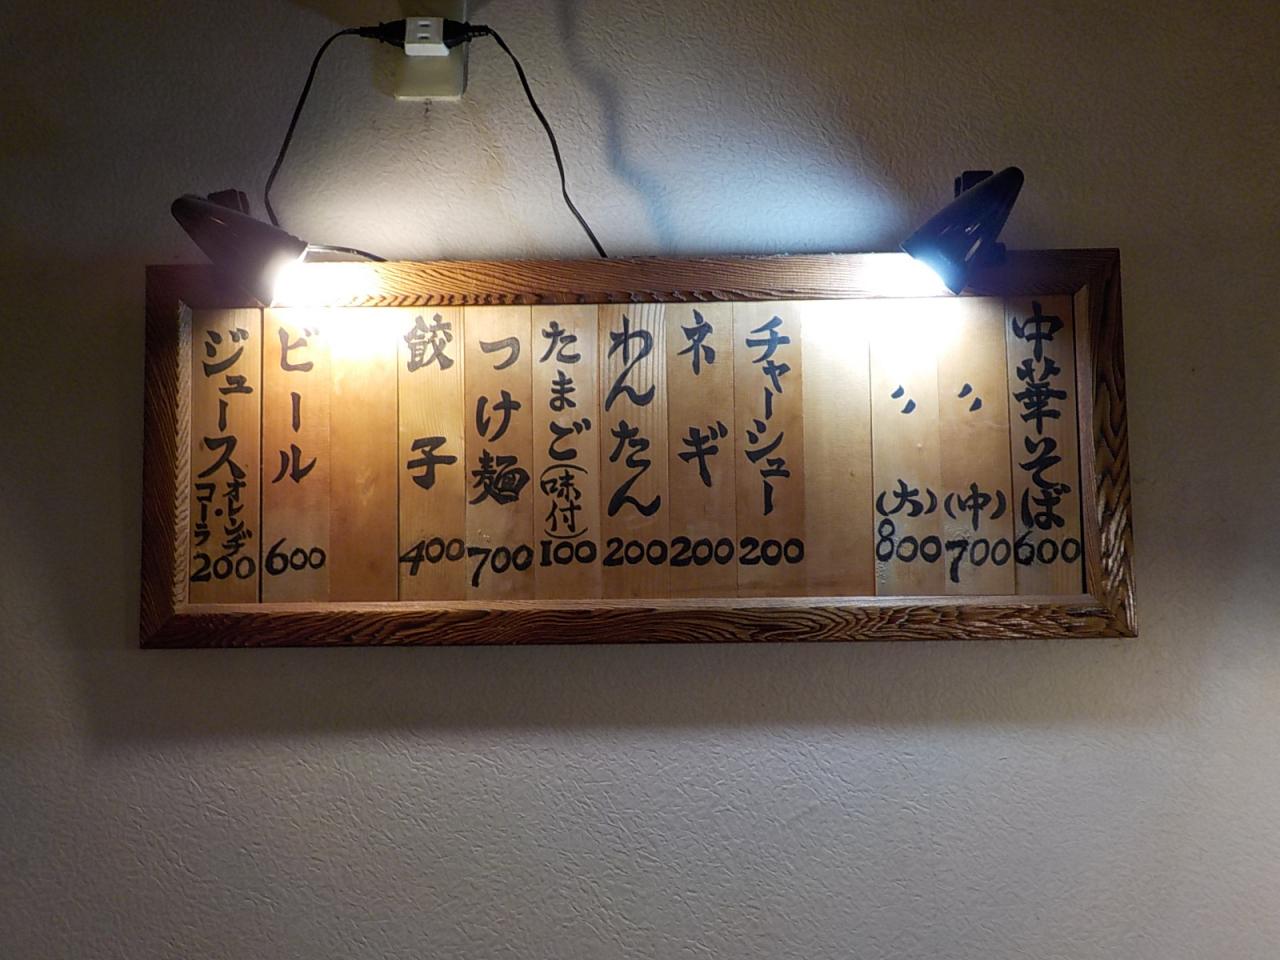 中華そば 600
〃 (中) 700
〃 (大) 800
チャーシュー 200
ネギ 200
わんたん 200
たまご(味付) 100
つけ麺 700
餃子 400
ビール 600
ジュース オレンヂ・コーラ 200